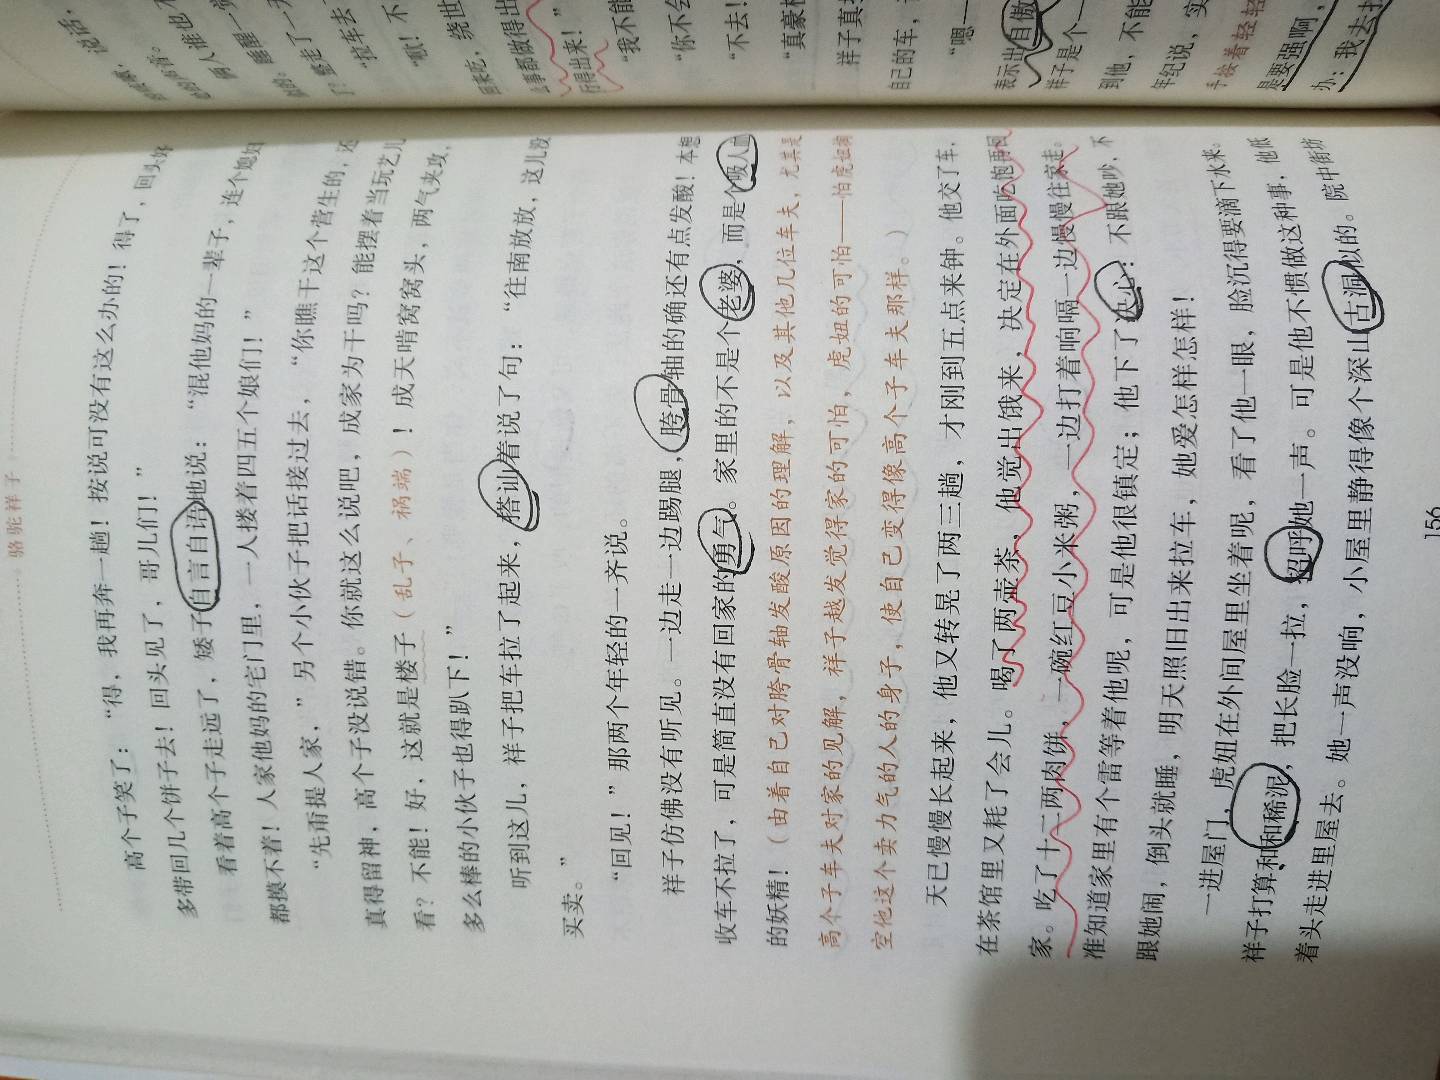 骆驼祥子
高个子笑了：“得，我再奔一趟！按说可没有这么办的！得了，回头好
多带回几个饼子去！回头见了，哥儿们！”
看着高个子走远了，矮子自言自语地说：“混他妈的一辈子，连个媳妇
都摸不着！人家他妈的宅门里，一人搂着四五个娘们！”
“先甭提人家，”另个小伙子把话接过去，“你瞧干这个营生的，还
真得留神，高个子没说错。你就这么说吧，成家为干吗？能摆着当玩艺儿
看？不能！好，这就是楼子（乱子、祸端）！成天啃窝窝头，两气夹攻，
多么棒的小伙子也得趴下！”
听到这儿，祥子把车拉了起来，搭讪着说了句：“往南放放，这儿没
买卖。”
“回见！”那两个年轻的一齐说。
祥子仿佛没有听见。一边走一边踢腿，胯骨轴的确还有点发酸！本想
收车不拉了，可是简直没有回家的勇气。家里的不是个老婆，而是个吸人血
的妖精！（由着自己对胯骨轴发酸原因的理解，以及其他几位车夫，尤其是
高个子车夫对家的见解，祥子越发觉得家的可怕，虎妞的可怕——怕虎妞掏
空他这个卖力气的人的身子，使自己变得像高个子车夫那样。）
天已慢慢长起来，他又转晃了两三趟，才刚到五点来钟。他交了车，
在茶馆里又耗了会儿。喝了两壶茶，他觉出饿来，决定在外面吃饱再回
家。吃了十二两肉饼，一碗红豆小米粥，一边打着响嗝一边慢慢往家走。
准知道家里有个雷等着他呢，可是他很镇定；他下了决心：不跟她吵，不
跟她闹，倒头就睡，明天照旧出来拉车，她爱怎样怎样！
一进屋门，虎妞在外间屋里坐着呢，看了他一眼，脸沉得要滴下水来。
祥子打算和和稀泥，把长脸一拉，招呼她一声。可是他不惯做这种事，他低
着头走进里屋去。她一声没响，小屋里静得像个深山古洞似的。院中街坊
156
“我不能
“你不会
“不去！
“真豪横
样子真
自己的车，
“嗯——
表示出自傲
祥子是个一
到他，不能
年纪说，实
手按着轻轻
是要强啊，
办：我去打